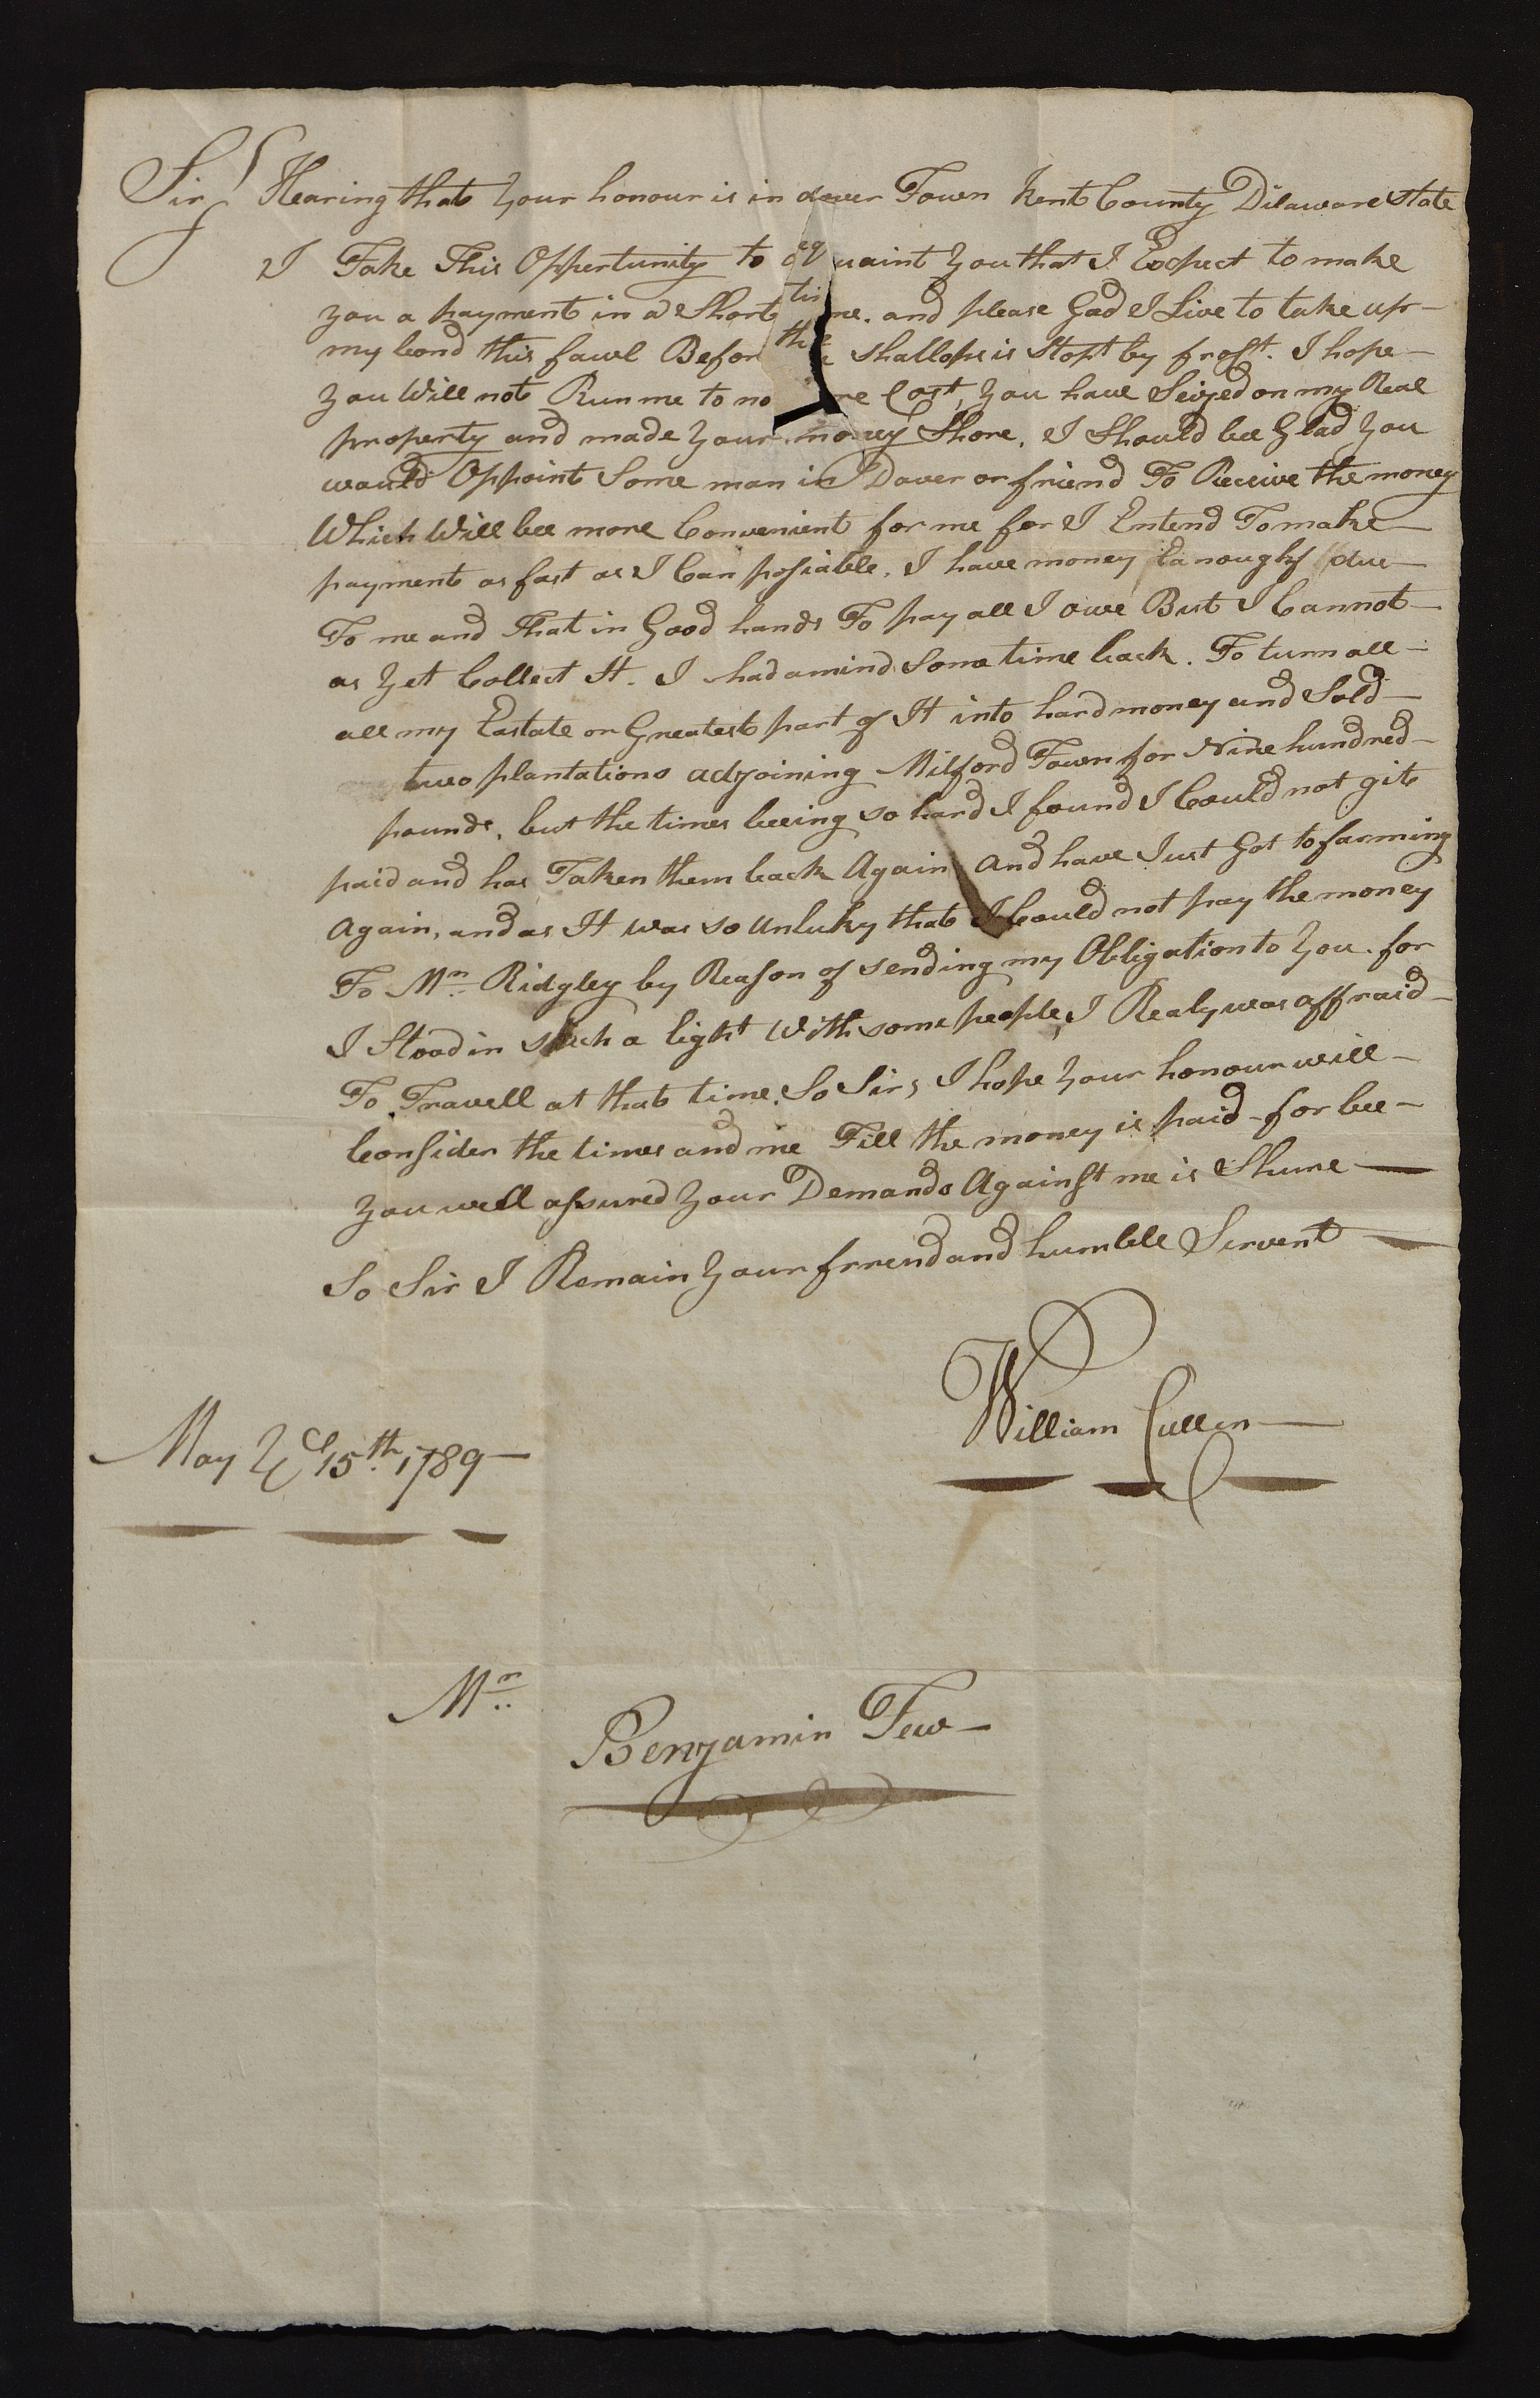 Sir Hearing that your honour is in dover Town Kent County Dilaware state
I Take This Oppertunity to acquaint you that I Expect to make
you a payment in a Short time. and please God I Live to take up
my bond this fawl Before the shallops is Stopt by frost. I hope
you Will not Run me to no more Cost, you have Seized on my Real
property and made your money Shore. I Should bee Glad you
would Oppoint Some man in Dover or friend To Receive the money
Which Will bee more Convenient for me for I Entend To make
payment as fast as I Can posiable. I have money Eanough due
To me and That in Good hands To pay all I owe But I Cannot
as yet Collect It. I had a mind Some time back. To turn all
all my Eastate or Greatest part of It into hard money and Sold
two plantations adjoining Milford Town for Nine hundred
pounds, but the times beeing so hard I found I Could not git
paid and has Taken them back Again and have Just Got to farming
Again, and as It was so unluky that I Could not pay the money
To Mr. Ridgley by Reason of sending my Obligation to you. for
I Stood in such a light With some people, I Realy was affraid
To Travell at that time. So Sir, I hope your honour will
Consider the times and me Till the money is paid - for bee
you well assured your Demands Against me is Shure
So Sir I Remain your frrend and humble Servent
William Cullen
May ye 15th. 1789
Mr.
Benjamin Few